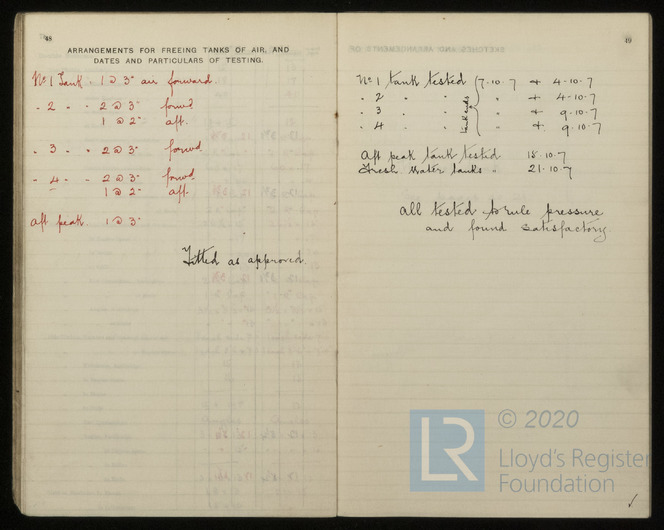 48
ARRANGEMENTS FOR FREEING TANKS OF AIR, AND
DATES AND PARTICULARS OF TESTING.
No 1 Tank - 1 @ 3" air forward.
" 2 " " 2 @ 3" forwd
1 @ 2" aft.
" 3 " " 2 @ 3" forwd.
" 4 " " 2 @ 3" forwd
1 @ 2" aft.
Aft peak. 1 @ 3"
Fitted as approved.
49
No 1 tank tested 7.10.7 + 4.10.7
" 2 " " + 4.10.7
" 3 " " + 9.10.7
" 4 " " + 9.10.7
tank ends
Aft peak tank tested 18.10.7
Fresh water tanks " 21.10.7
all tested to rule pressure
and found satisfactory.
LR
© 2020
Lloyd's Register
Foundation